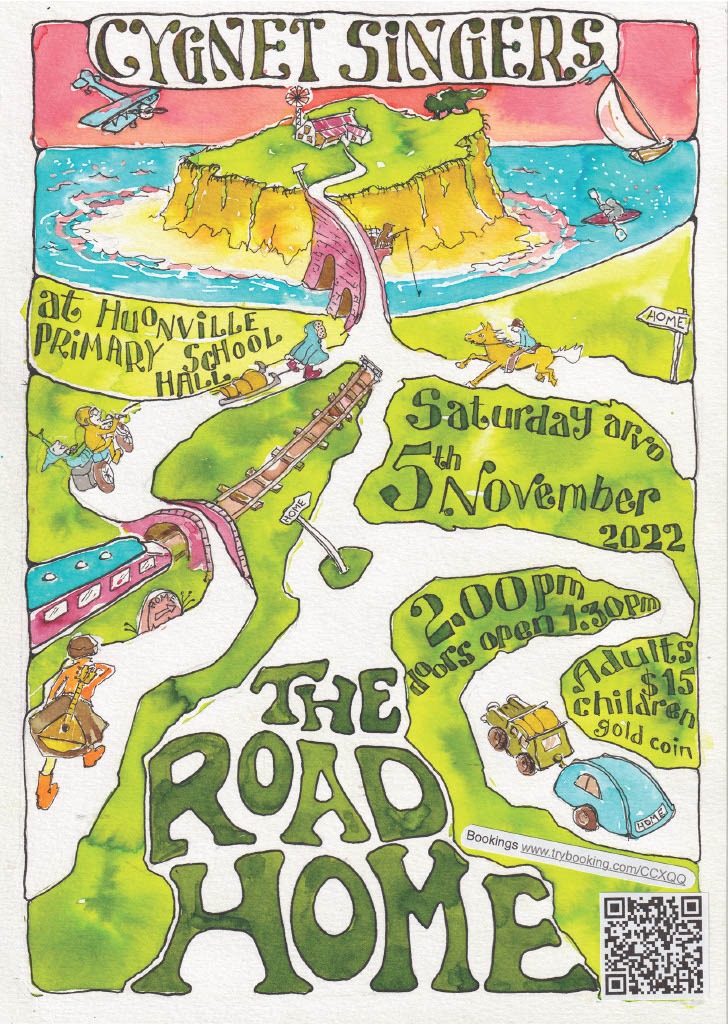 CYGNET SiNGERS
at HUONVILLE
PRiMARY SCHOOL
HALL
HOME
Saturday arvo
5th November
2022
HOME
2.00pm
doors open 1:30pm
ROME
Adults
$15
children
gold coin
THE
ROAD
HOME
HOME
Bookings www.trybooking.com/CCXQQ